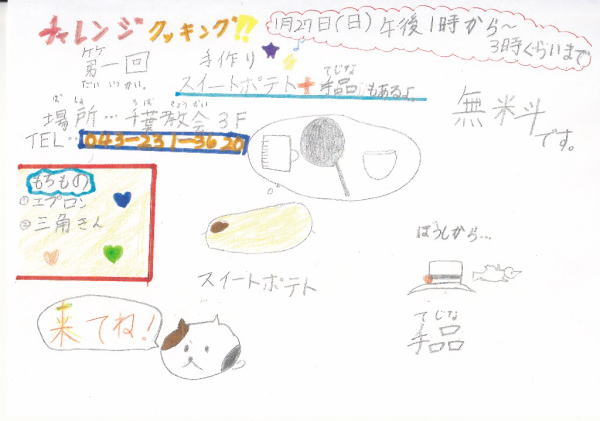 チャレンジクッキング!!
1月27日(日)午後1時から〜
3時ぐらいまで
第一回
だいいっかい。
手作り
スイートポテト+手品もあるよ。
てじな
ばしょ ちばきょうかい
場所…千葉教会3F
TEL…043-231-3620
無料
です。
もちもの
①エプロン
②三角きん
スイートポテト
ぼうしから…
てじな
手品
来てね!